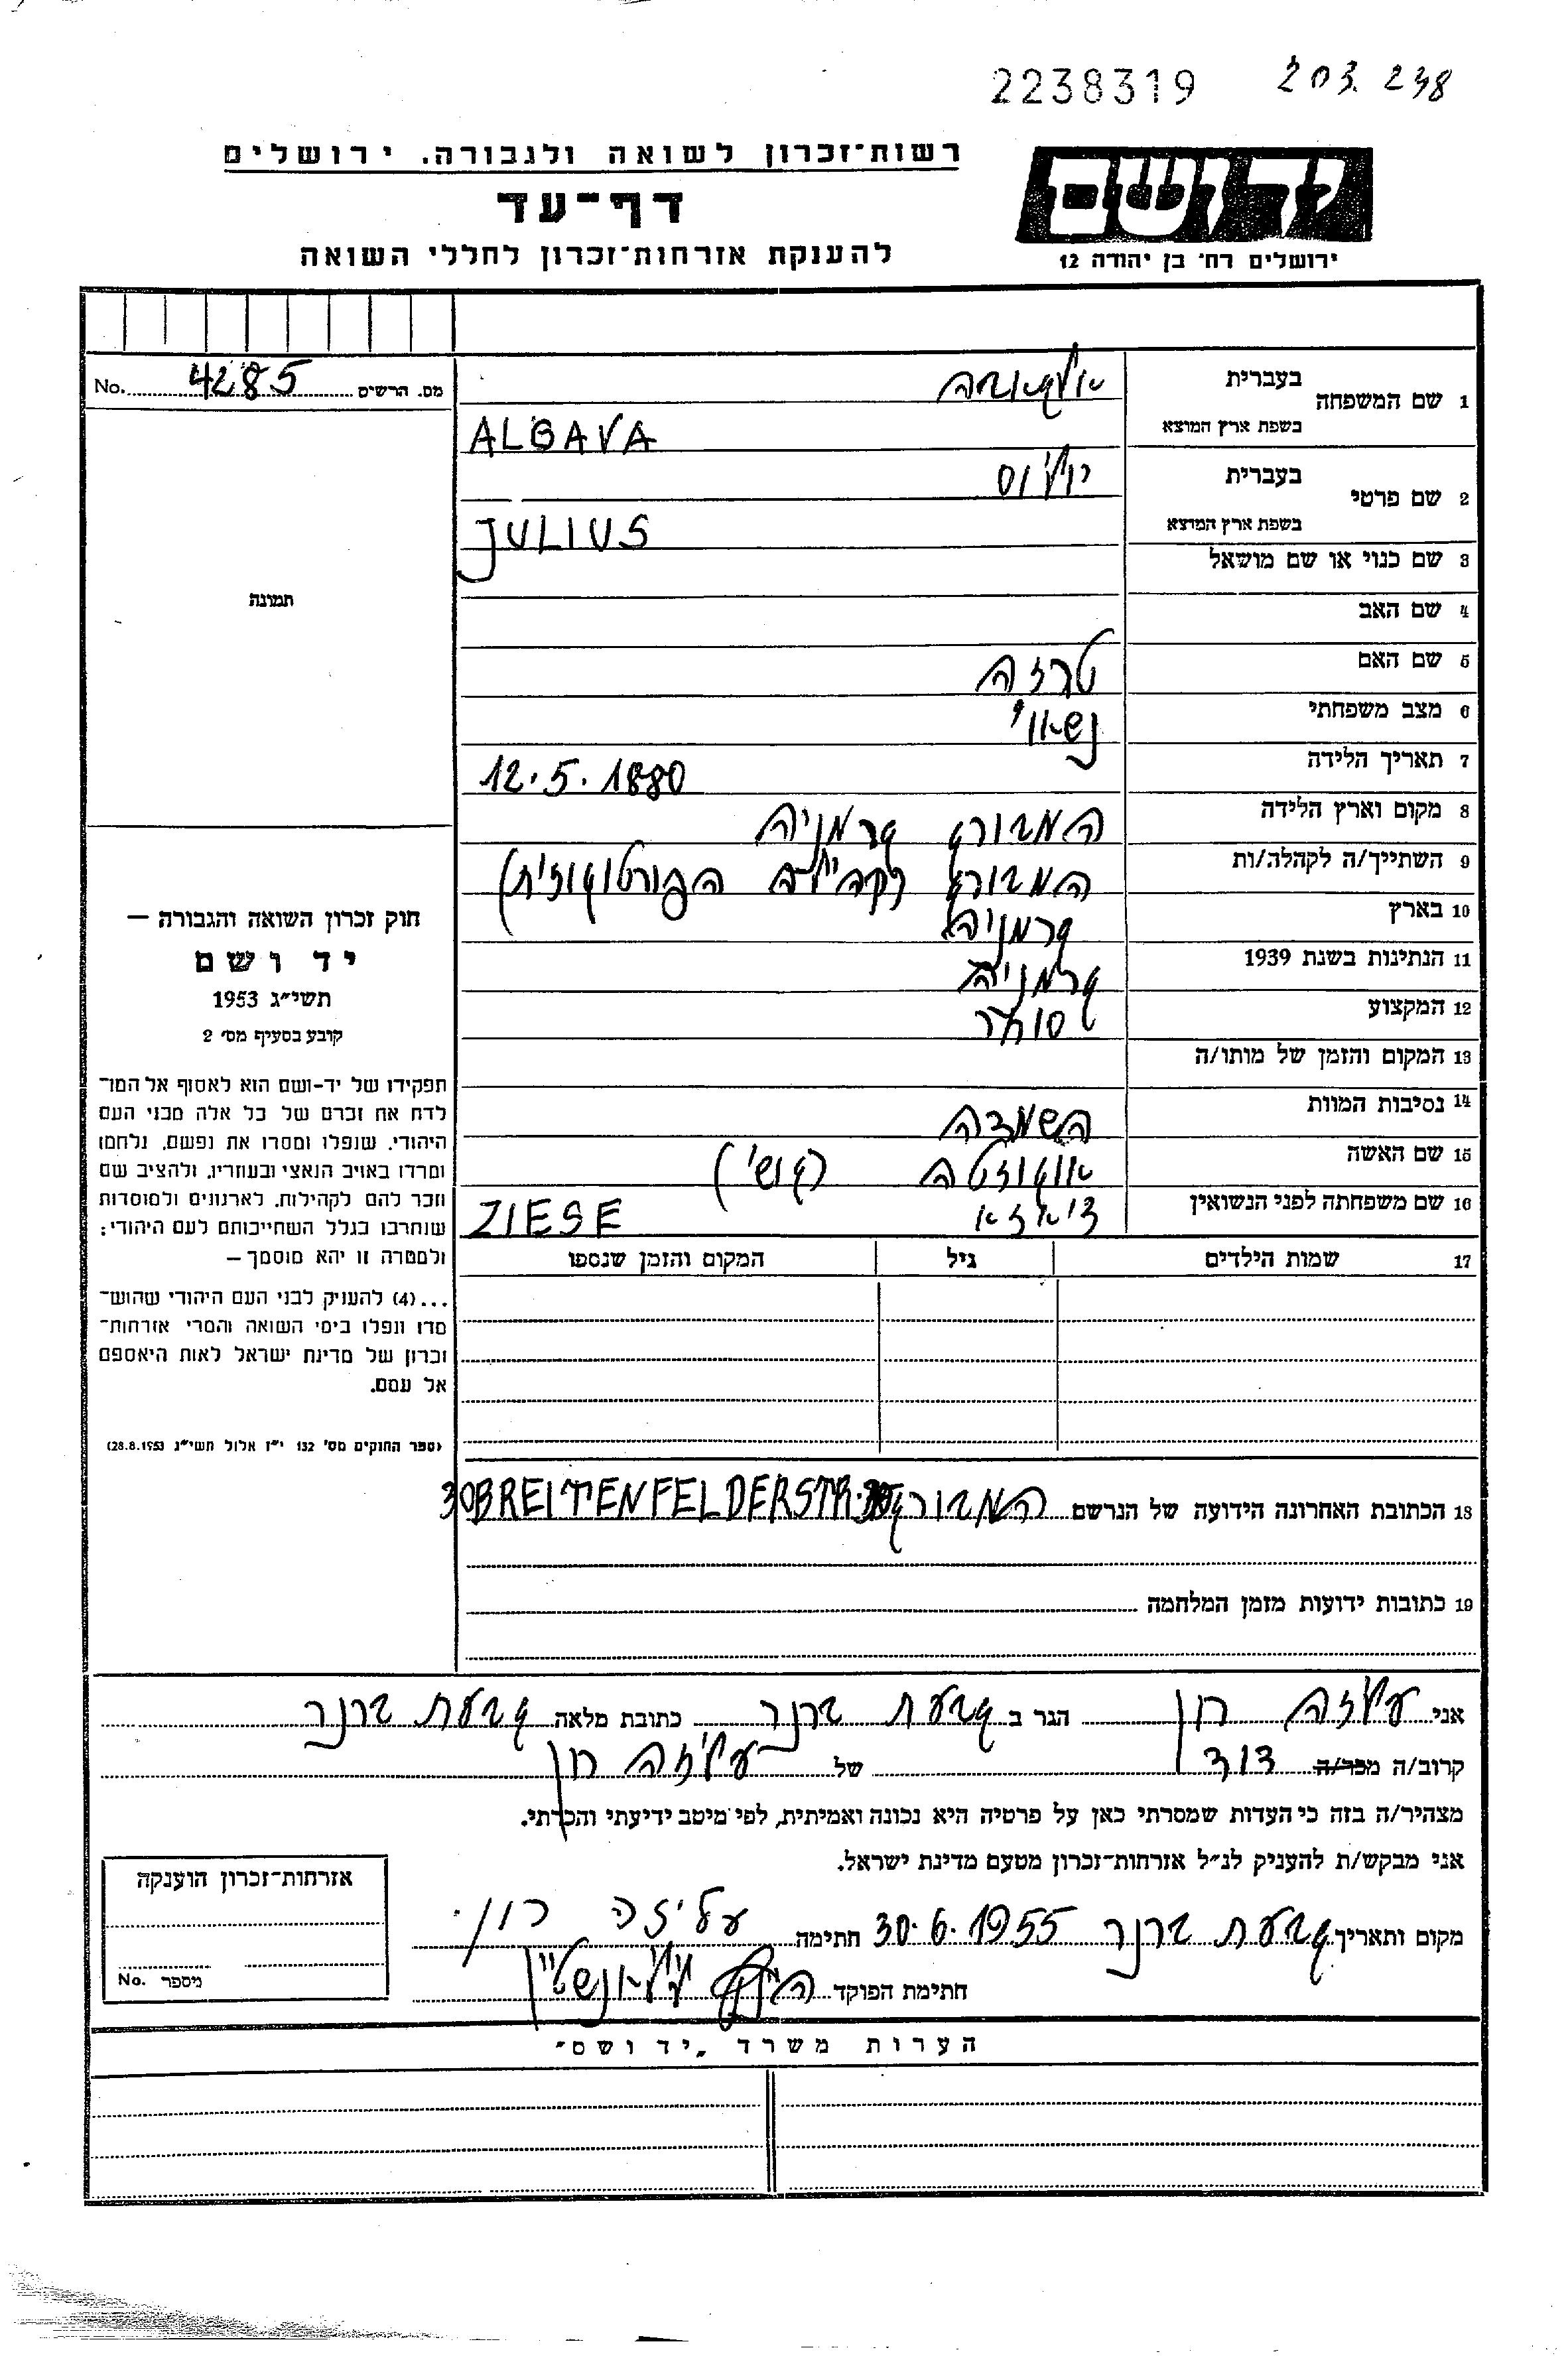 2238319 203.248
רשות־זכרון לשואה ולגבורה, ירושלים
דף־עד
להענקת אזרחות־זכרון לחללי השואה
יד ושם
ירושלים רח׳ בן יהודה 12
No. 4285 מס. הרשים
1 שם המשפחה
בעברית
בשפת ארץ המוצא
ALGAVA
2 שם פרטי
בעברית יוליוס
בשפת ארץ המוצא
JULIUS
3 שם כנוי או שם מושאל
4 שם האב
5 שם האם טרזה
6 מצב משפחתי נשואי
7 תאריך הלידה 12.5.1880
8 מקום וארץ הלידה המבורג גרמניה
9 השתייך/ה לקהלה/ות המבורג (קהילה הפורטוגזית)
10 בארץ גרמניה
11 הנתינות בשנת 1939 גרמניה
12 המקצוע סוחר
13 המקום והזמן של מותו/ה
14 נסיבות המוות השמדה
15 שם האשה אוגוזטה (גוש')
16 שם משפחתה לפני הנשואין ציאזא ZIESE
17 שמות הילדים גיל המקום והזמן שנספו
18 הכתובת האחרונה הידועה של הנרשם המבורג BREITENFELDERSTR. 30
19 כתובות ידועות מזמן המלחמה
תמונה
חוק זכרון השואה והגבורה —
יד ושם
תשי״ג 1953
קובע בסעיף מס׳ 2
תפקידו של יד־ושם הוא לאסוף אל המו־
לדת את זכרם של כל אלה מבני העם
היהודי, שנפלו ומסרו את נפשם, נלחמו
ומרדו באויב הנאצי ובעוזריו, ולהציב שם
וזכר להם לקהילות, לארגונים ולמוסדות
שנחרבו בגלל השתייכותם לעם היהודי;
ולמטרה זו יהא מוסמך —
...(4) להעניק לבני העם היהודי שהוש־
מדו ונפלו בימי השואה והמרי אזרחות־
זכרון של מדינת ישראל לאות היאספם
אל עמם.
(ספר החוקים מס׳ 132 י״ז אלול תשי״ג 28.8.1953)
אני עליזה רון הגר ב גבעת ברנר כתובת מלאה גבעת ברנר
קרוב/ה מכר/ה דוד של עליזה רון
מצהיר/ה בזה כי העדות שמסרתי כאן על פרטיה היא נכונה ואמיתית, לפי מיטב ידיעתי והכרתי.
אני מבקש/ת להעניק לנ״ל אזרחות־זכרון מטעם מדינת ישראל.
מקום ותאריך גבעת ברנר 30.6.1955 חתימה עליזה רון
חתימת הפוקד
אזרחות־זכרון הוענקה
No. מיספר
הערות משרד „יד ושם״